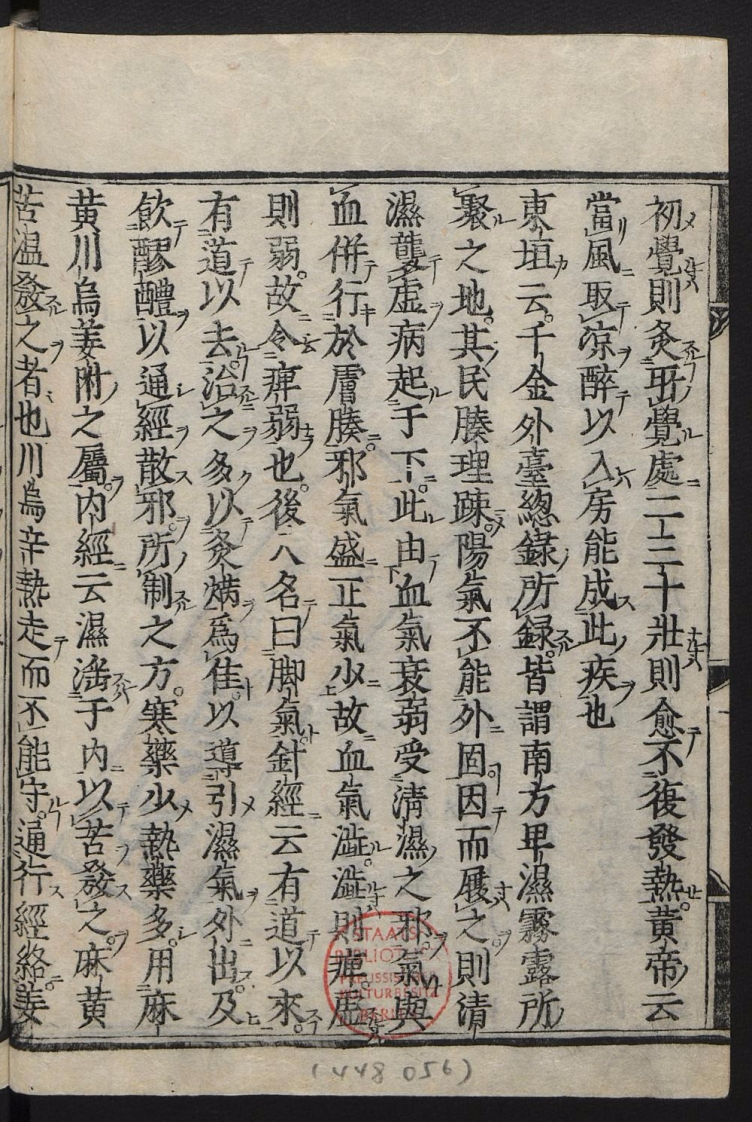 初覺則灸所覺處二三十壯則愈不復發熱黃帝云
當風取凉醉以入房能成此疾也
東垣云千金外臺總錄所録皆謂南方卑濕霧露所
聚之地其民腠理踈陽氣不能外固因而履之則清
濕襲虛病起于下此由血氣衰弱受清濕之邪氣與
血併行於膚腠邪氣盛正氣少故血氣澁澁則痺虛
則弱故令痺弱也後人名曰脚氣針經云有道以來
有道以去治之多以灸焫爲佳以導引濕氣外出及
飲醪醴以通經散邪所制之方寒藥少熱藥多用麻
黄川烏姜附之屬內經云濕淫于內以苦發之麻黄
苦温發之者也川烏辛熱走而不能守通行經絡姜
STAATSBIBLIOTHEK
PREUSSISCHER
KULTURBESITZ
BERLIN
(448 056)